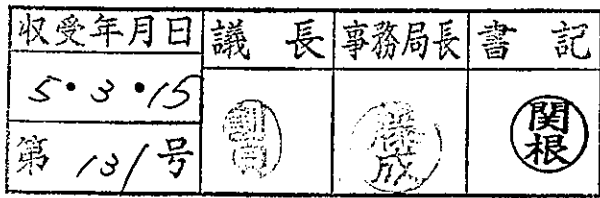 収受年月日 議長 事務局長 書記
5・3・15
第 131 号
関根